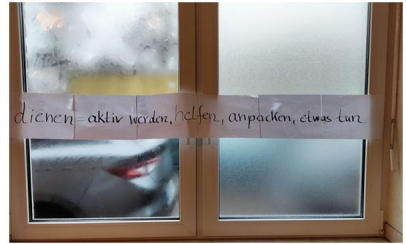 dienen = aktiv werden, helfen, anpacken, etwas tun